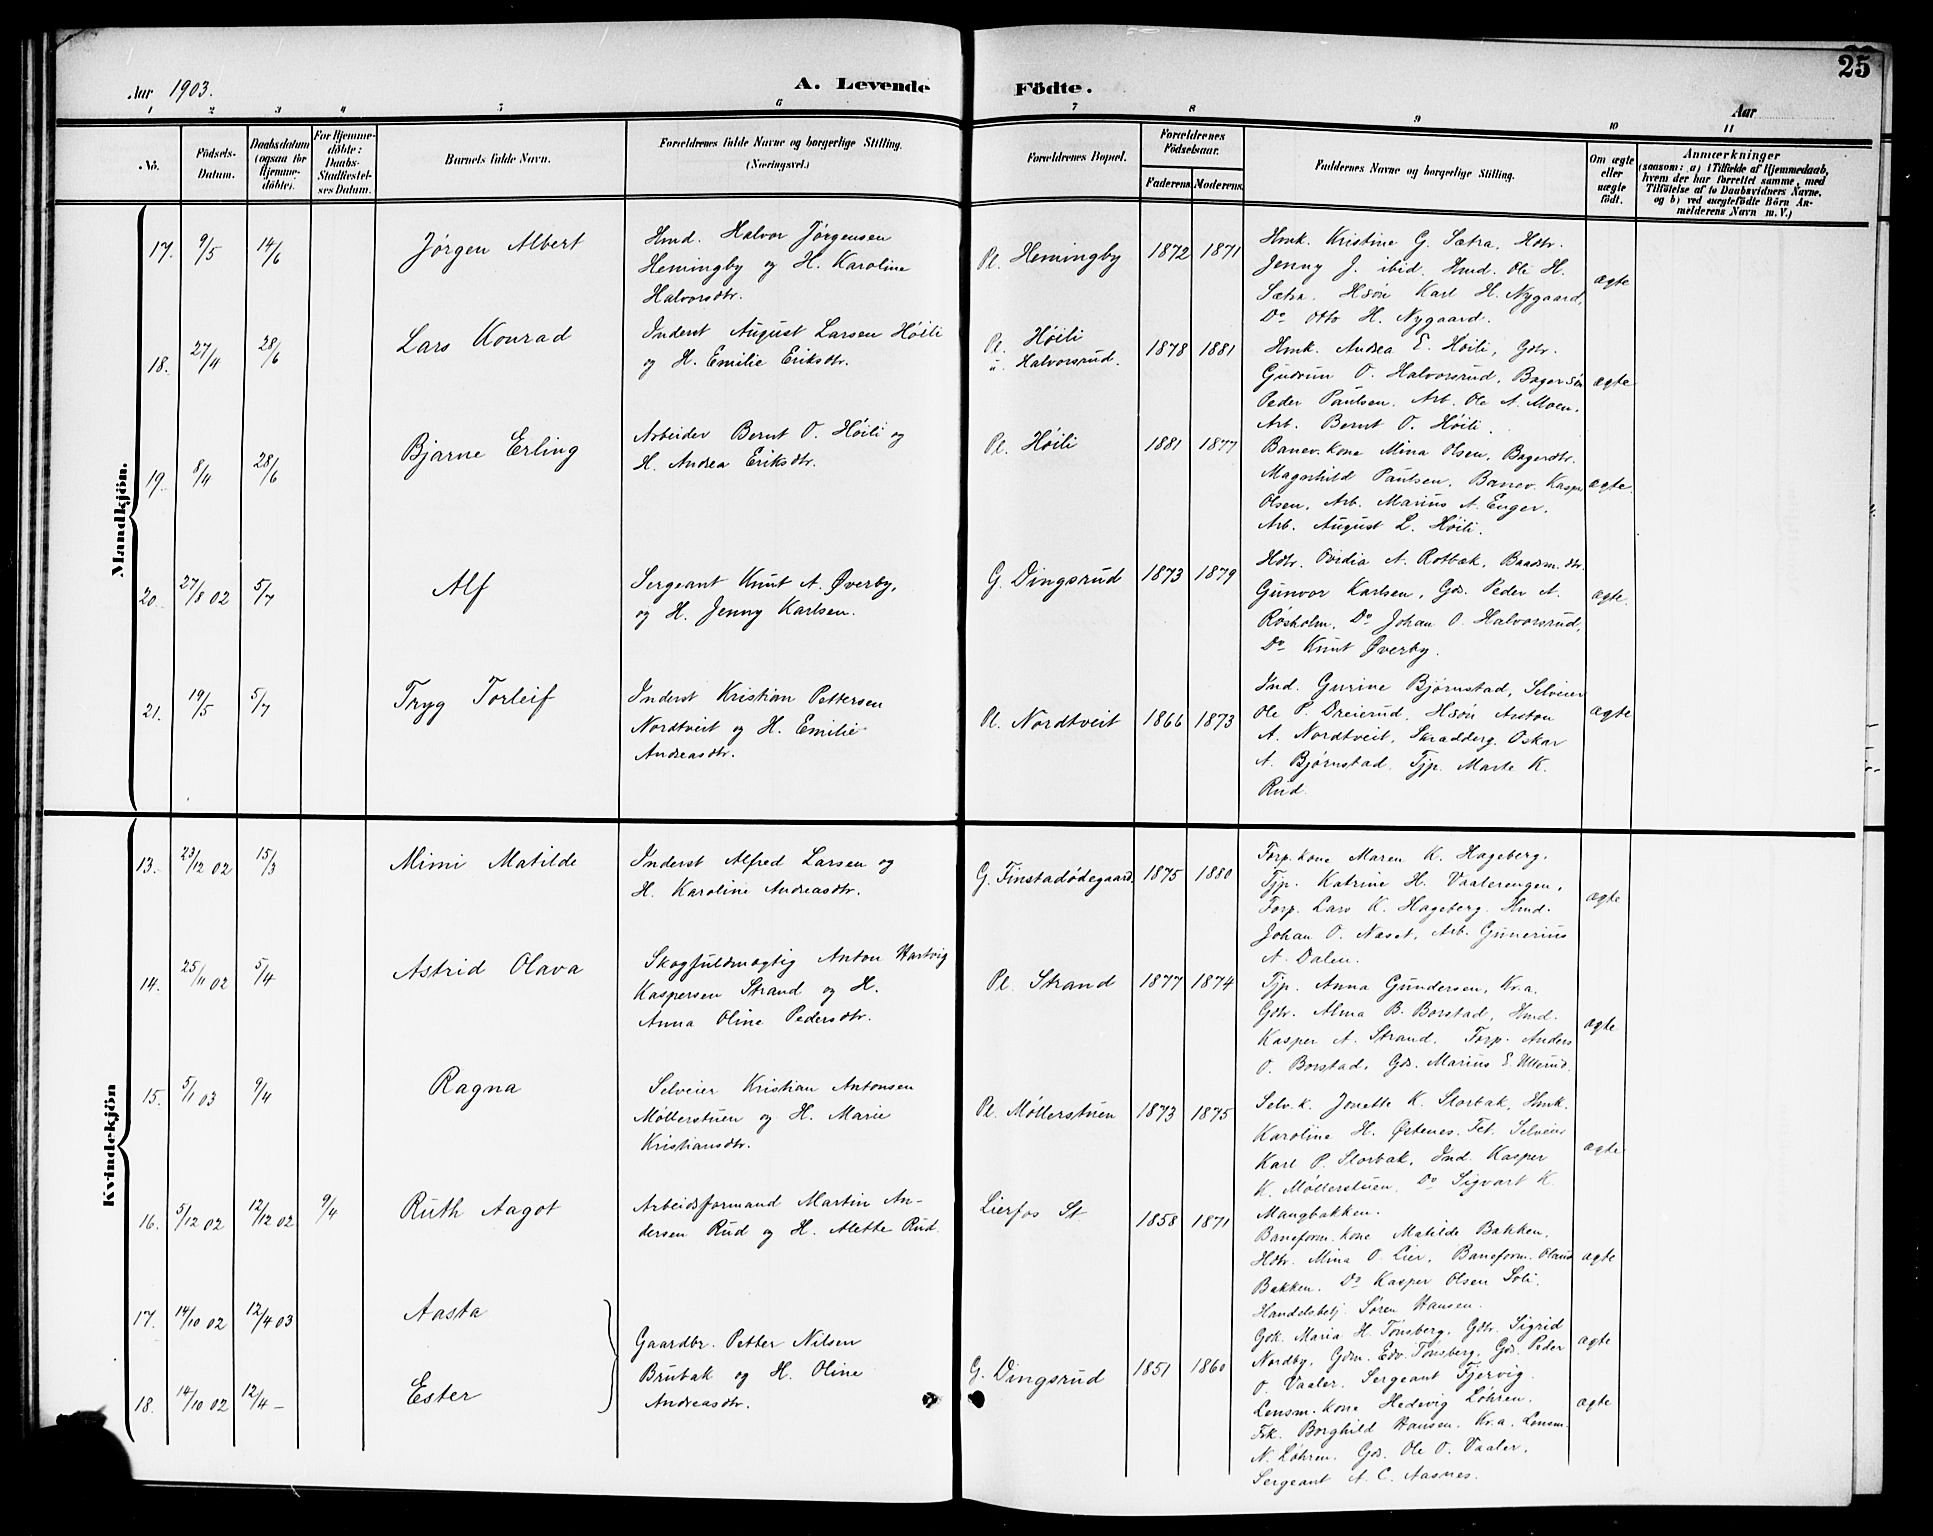 25
Aar 1903.
A. Levende Födte.
Aar
1 2 3 4 5 6 7 8 9 10 11
No.
Födsels-
Datum.
Daabsdatum
(ogsaa for
Hjemme-
döbte).
For Hjemme-
döbte:
Daabs-
Stadfæstel-
ses Datum.
Barnets fulde Navn.
Forældrenes fulde Navne og borgerlige Stilling.
(Næringsvei.)
Forældrenes Bopæl.
Forældrenes
Födselsaar.
Faderens Moderens
Faddernes Navne og borgerlige Stilling.
Om ægte
eller
uægte
födt.
Anmærkninger
(saasom: a) i Tilfælde af Hjemmedaab,
hvem der har forrettet samme, med
Tilföielse af to Daabsvidners Navne,
og b) ved uægtefödte Börn An-
melderens Navn m. V.)
Mandkjön.
17. 9/5 14/6
Jørgen Albert
Hmd. Halvor Jørgensen
Hemingby og H. Karoline
Halvorsdtr.
Pl. Hemingby 1872 1871
Hmk. Kristine G. Sætra, Hdtr.
Jenny J. ibid. Hmd. Ole H.
Sætra. Hsøn Karl H. Nygaard,
Do Otto H. Nygaard.
ægte
18. 27/4 28/6
Lars Konrad
Inderst August Larsen Høili
og H. Emilie Eriksdtr.
Pl. Høili
u. Halvorsrud.
1878 1881
Hmk. Andrea E. Høili, Gdtr.
Gudrun O. Halvorsrud, Bager Søn
Peder Paulsen. Arb. Ole A. Moen,
Arb. Bernt O. Høili.
ægte
19. 8/4 28/6
Bjarne Erling
Arbeider Bernt O. Høili og
H. Andrea Eriksdtr.
Pl. Høili 1881 1877
Banev. kone Mina Olsen, Bagerdtr.
Magnhild Paulsen, Banev. Kasper
Olsen, Arb. Marius A. Enger.
Arb. August L. Høili.
ægte.
20. 27/8 02 5/7
Alf
Sergeant Knut A. Øverby,
og H. Jenny Karlsen.
G. Dingsrud 1873 1879
Hdtr. Ovidia A. Rotbæk, Baadsm. dtr.
Gunvor Karlsen, Gds. Peder A.
Røsholm, Do Johan O. Halvorsrud,
Do Knut Øverby.
ægte.
21. 19/5 5/7
Tryg Torleif
Inderst Kristian Pettersen
Nordtveit og H. Emilie
Andreasdtr.
Pl. Nordtveit 1866 1873
Ind. Gurine Bjørnstad, Selveier
Ole P. Dreierud, Hsøn Anton
A. Nordtveit, Skrædderg. Oskar
A. Bjørnstad, Tjp. Marte K.
Rud.
ægte
Kvindekjön
13. 23/12 02 15/3
Mimi Matilde
Inderst Alfred Larsen og
H. Karoline Andreasdtr.
G. Finstadødegaard. 1875 1880
Forp. kone Maren K. Hageberg,
Tjp. Katrine H. Vaalerengen,
Forp. Lars K. Hageberg. Hmd.
Johan O. Næset, Arb. Gunerius
A. Dalen.
ægte
14. 25/11 02 5/4
Astrid Olava
Skogfuldmægtig Anton Hartvig
Kaspersen Strand og H.
Anna Oline Pedersdtr.
Pl. Strand 1877 1874
Tjp. Anna Gundersen, Kr.a.
Gdtr. Alma B. Borstad, Hmd.
Kasper A. Strand. Forp. Anders
O. Borstad, Gds. Marius E. Ullerud.
ægte
15. 5/1 03 9/4
Ragna
Selveier Kristian Antonsen
Møllerstuen og H. Marie
Kristiansdtr.
Pl. Møllerstuen 1873 1875
Selv.k. Jonette K. Storbak, Hmk.
Karoline H. Østenes. Fet. Selveier
Karl P. Storbak, Ind. Kasper
K. Møllerstuen, Do Sigvart K.
Mangbakken.
ægte
16. 5/12 02 12/12 02 9/4
Ruth Aagot
Arbeidsformand Martin An-
dersen Rud og H. Alette Rud.
Lierfos St 1858 1871
Baneform. kone Matilde Bakken,
Hdtr. Mina O. Lier, Baneform. Olaus
Bakken. Do Kasper Olsen Soli.
Handelsbetj. Søren Hansen.
ægte
17. 14/10 02 12/4 03
Aasta
Gaardbr. Petter Nilsen
Brubak og H. Oline
Andreasdtr.
G. Dingsrud 1851 1860
Gdk. Maria H. Tønsberg, Gdtr. Sigrid
Nordby, Gdm. Edv. Tønsberg, Gds. Peder
O. Vaaler. Sergeant Tjervig.
ægte
18. 14/10 02 12/4 –
Ester
Lensm. kone Hedevig Løhren.
Frk. Borghild Hansen. Kr.a. Lensm.
N. Løhren. Gds. Ole O. Vaaler,
Sergeant A. C. Aasnes.
ægte